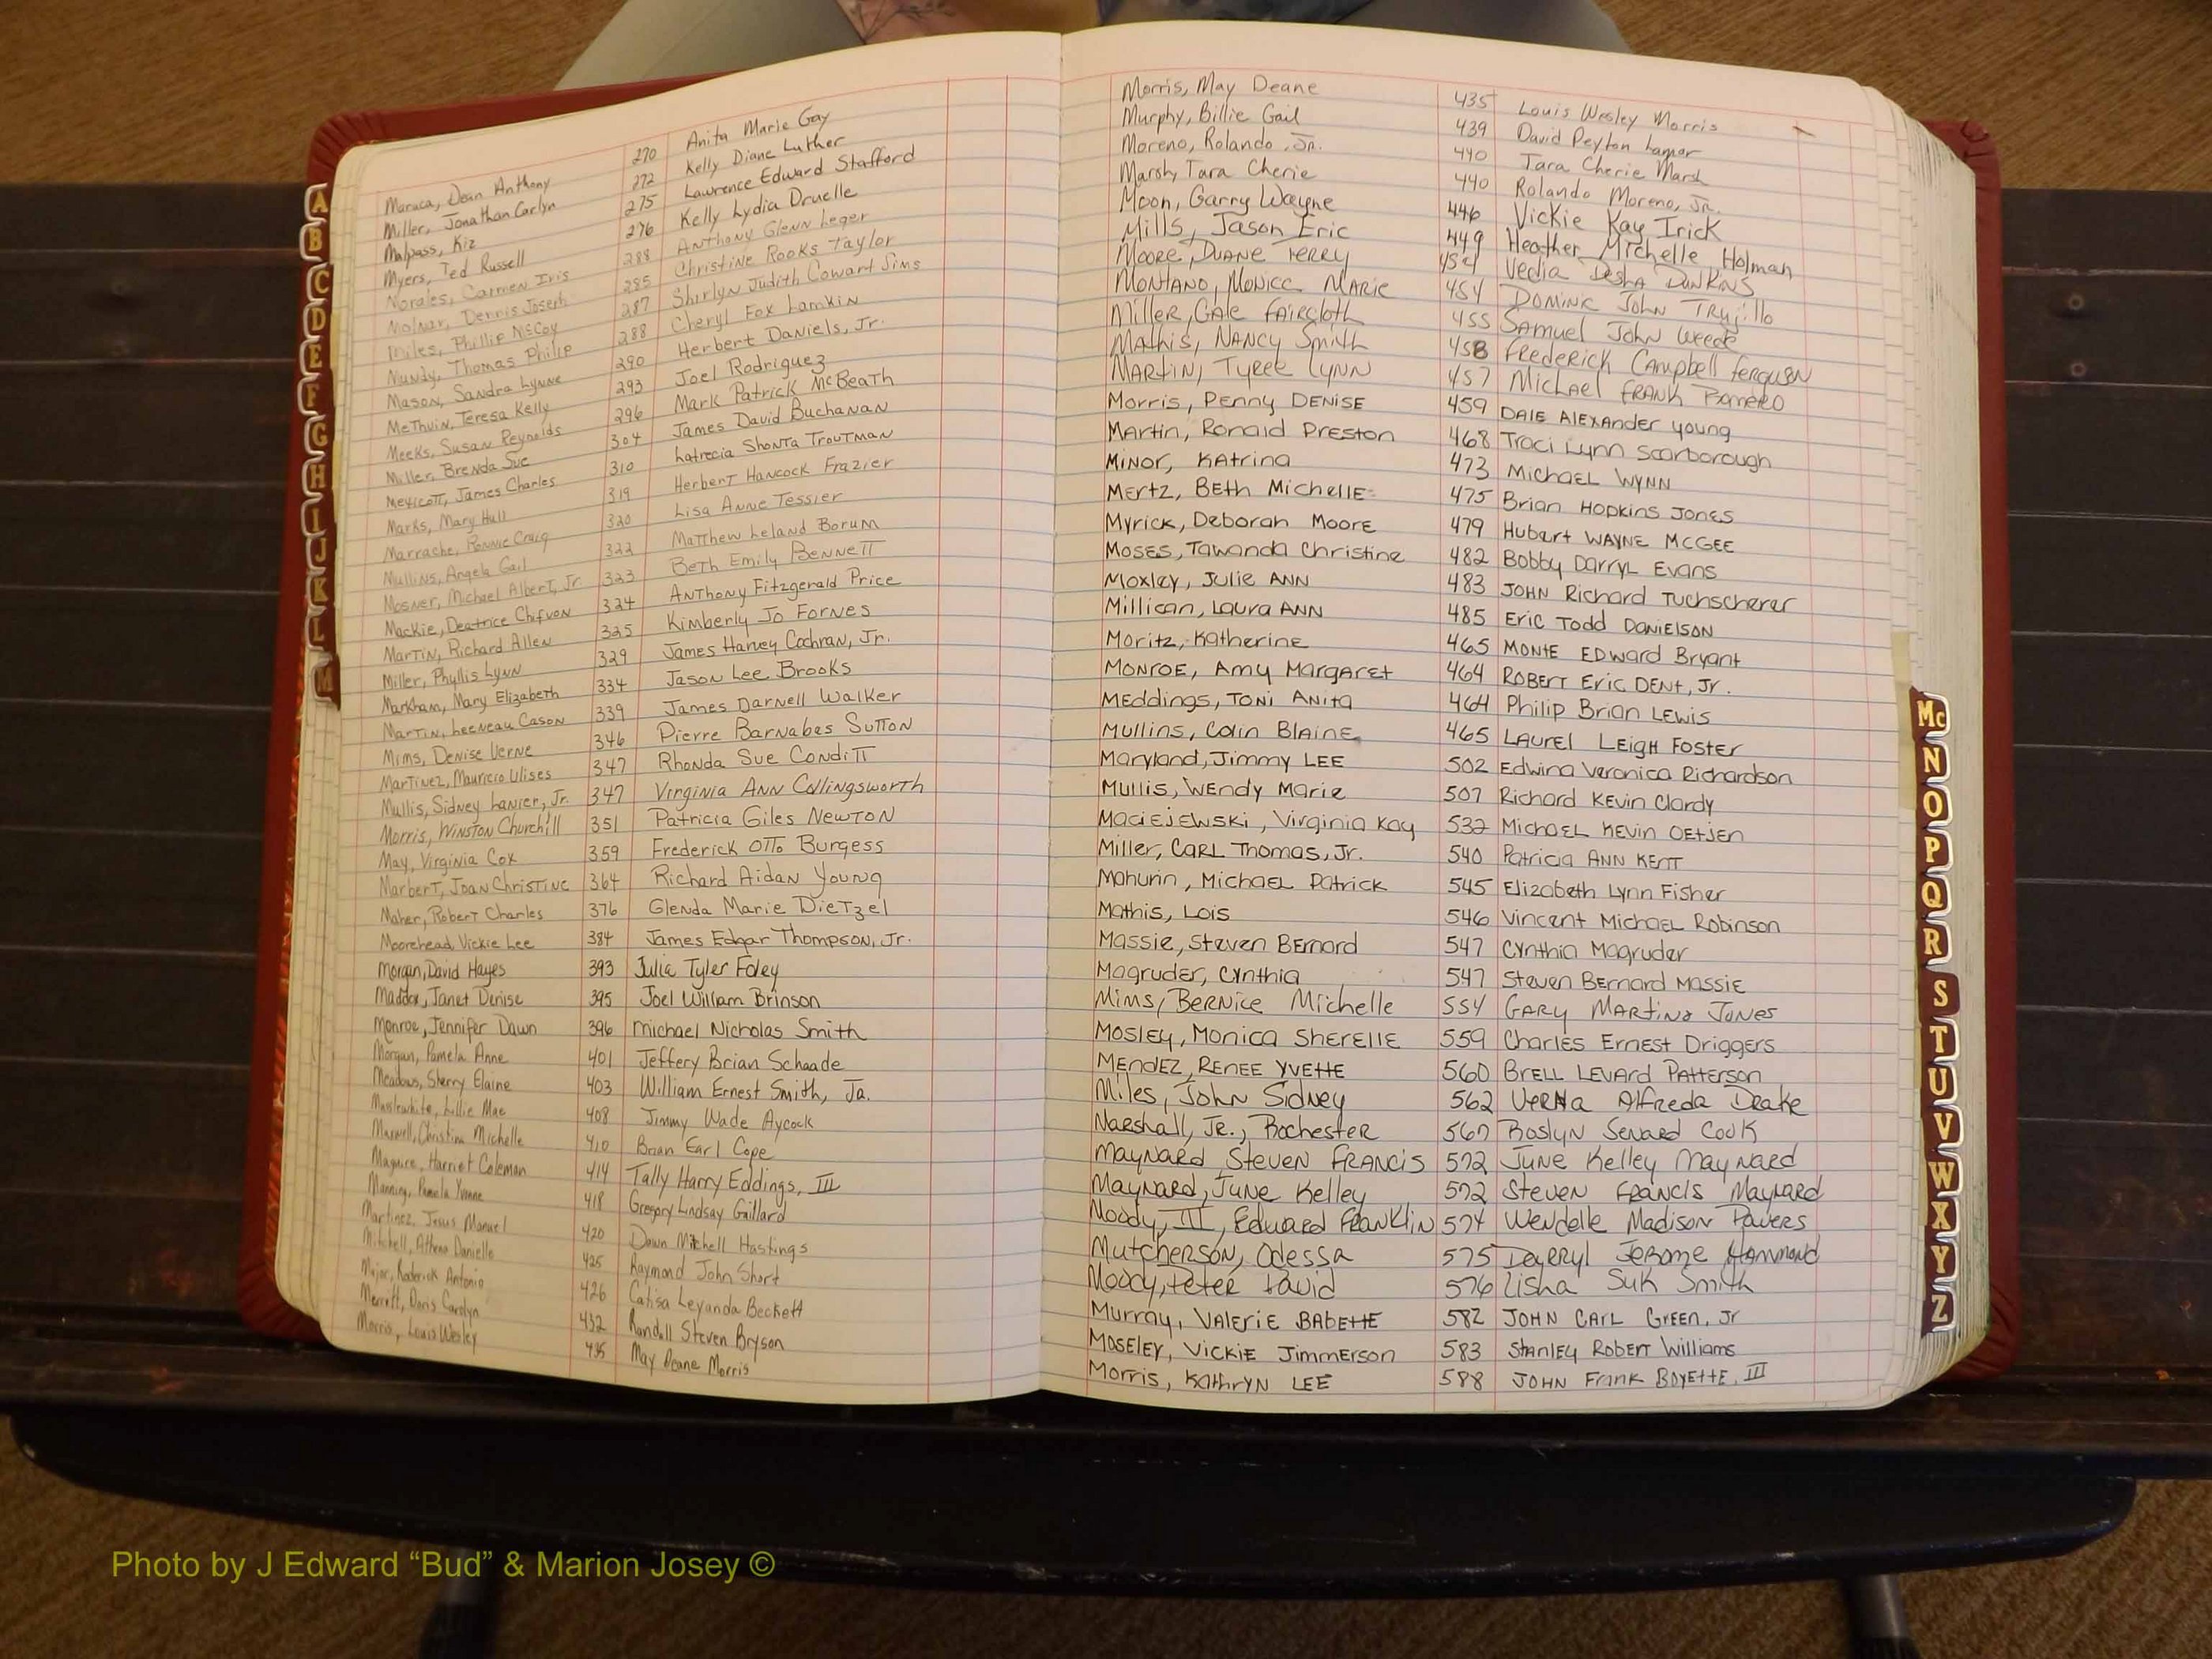 Maruca, Dean Anthony 270 Anita Marie Gay
Miller, Jonathan Carlyn 272 Kelly Diane Luther
Malpass, Kiz 275 Lawrence Edward Stafford
Myers, Ted Russell 276 Kelly Lydia Druelle
Morales, Carmen Iris 288 Anthony Glenn Leger
Molnar, Dennis Joseph 285 Christine Rooks Taylor
Miles, Phillip McCoy 287 Shirlyn Judith Cowart Sims
Mundy, Thomas Philip 288 Cheryl Fox Lamkin
Mason, Sandra Lynne 290 Herbert Daniels, Jr.
Methvin, Teresa Kelly 293 Joel Rodriguez
Meeks, Susan Reynolds 296 Mark Patrick McBeath
Miller, Brenda Sue 304 James David Buchanan
James Charles 310 Latrecia Shonta Troutman
Marks, Mary Hull 319 Herbert Hancock Frazier
Marrache, Ronnie Craig 320 Lisa Anne Tessier
Mullins, Angela Gail 322 Matthew Leland Borum
Mosner, Michael Albert, Jr. 323 Beth Emily Bennett
Mackie, Deatrice Chifvon 324 Anthony Fitzgerald Price
Martin, Richard Allen 325 Kimberly Jo Fornes
Miller, Phyllis Lynn 329 James Harvey Cochran, Jr.
Markham, Mary Elizabeth 334 Jason Lee Brooks
Martin, Leeneau Cason 339 James Darnell Walker
Mims, Denise Verne 346 Pierre Barnabas Sutton
Martinez, Mauricio Ulises 347 Rhonda Sue Conditt
Mullis, Sidney Lanier, Jr. 347 Virginia Ann Collingsworth
Morris, Winston Churchill 351 Patricia Giles Newton
May, Virginia Cox 359 Frederick Otto Burgess
Marbert, Joan Christine 364 Richard Aidan Young
Maher, Robert Charles 376 Glenda Marie Dietzel
Moorehead, Vickie Lee 384 James Edgar Thompson, Jr.
Morgan, David Hayes 393 Julia Tyler Foley
Maddox, Janet Denise 395 Joel William Brinson
Monroe, Jennifer Dawn 396 Michael Nicholas Smith
Morgan, Pamela Anne 401 Jeffery Brian Schaade
Meadows, Sherry Elaine 403 William Ernest Smith, Jr.
Musslewhite, Lillie Mae 408 Jimmy Wade Aycock
Maxwell, Christina Michelle 410 Brian Earl Cope
Maguire, Harriet Coleman 414 Tally Harry Eddings, III
Manning, Pamela Yvonne 418 Gregory Lindsay Gaillard
Martinez, Jesus Manuel 420 Dawn Mitchell Hastings
Mitchell, Athena Danielle 425 Raymond John Short
Major, Roderick Antonio 426 Catisa Leyanda Beckett
Merrett, Doris Carolyn 432 Randall Steven Bryson
Morris, Louis Wesley 435 May Deane Morris
Morris, May Deane 435 Louis Wesley Morris
Murphy, Billie Gail 439 David Peyton Lamar
Moreno, Rolando Jr. 440 Tara Cherie Marsh
Marsh, Tara Cherie 440 Rolando Moreno, Jr.
Moon, Garry Wayne 446 Vickie Kay Irick
Mills, Jason Eric 449 Heather Michelle Holman
Moore, Duane Terry 454 Vedia Desha Dunkins
Montano, Monica Marie 454 Dominic John Trujillo
Miller, Gale Faircloth 455 Samuel John Weede
Mathis, Nancy Smith 458 Frederick Campbell Ferguson
Martin, Tyree Lynn 457 Michael Frank Romero
Morris, Penny Denise 459 Dale Alexander Young
Martin, Ronald Preston 468 Traci Lynn Scarborough
Minor, Katrina 473 Michael Wynn
Mertz, Beth Michelle 475 Brian Hopkins Jones
Myrick, Deborah Moore 479 Hubert Wayne McGee
Moses, Tawanda Christine 482 Bobby Darryl Evans
Moxley, Julie Ann 483 John Richard Tuchscherer
Millican, Laura Ann 485 Eric Todd Danielson
Moritz, Katherine 465 Monte Edward Bryant
Monroe, Amy Margaret 464 Robert Eric Dent, Jr.
Meddings, Toni Anita 464 Philip Brian Lewis
Mullins, Colin Blaine 465 Laurel Leigh Foster
Maryland, Jimmy Lee 502 Edwina Veronica Richardson
Mullis, Wendy Marie 507 Richard Kevin Clardy
Maciejewski, Virginia Kay 532 Michael Kevin Oetjen
Miller, Carl Thomas, Jr. 540 Patricia Ann Kent
Mahurin, Michael Patrick 545 Elizabeth Lynn Fisher
Mathis, Lois 546 Vincent Michael Robinson
Massie, Steven Bernard 547 Cynthia Magruder
Magruder, Cynthia 547 Steven Bernard Massie
Mims, Bernice Michelle 554 Gary Martino Jones
Mosley, Monica Sherelle 559 Charles Ernest Driggers
Mendez, Renee Yvette 560 Brell Levard Patterson
Miles, John Sidney 562 Verna Alfreda Drake
Marshall, Jr., Rochester 567 Roslyn Senard Cook
Maynard Steven Francis 572 June Kelley Maynard
Maynard, June Kelley 572 Steven Francis Maynard
Moody, III, Edward Franklin 574 Wendelle Madison Pavers
Mutcherson, Odessa 575 Deurryl Jerome Hammond
Moody, Peter David 576 Lisha Suk Smith
Murray, Valerie Babette 582 John Carl Green, Jr
Moseley, Vickie Jimmerson 583 Stanley Robert Williams
Morris, Kathryn Lee 588 John Frank Boyette, III
A
B
C
D
E
F
G
H
I
J
K
L
M
Mc
N
O
P
Q
R
S
T
U
V
W
X
Y
Z
Photo by J Edward “Bud” & Marion Josey ©